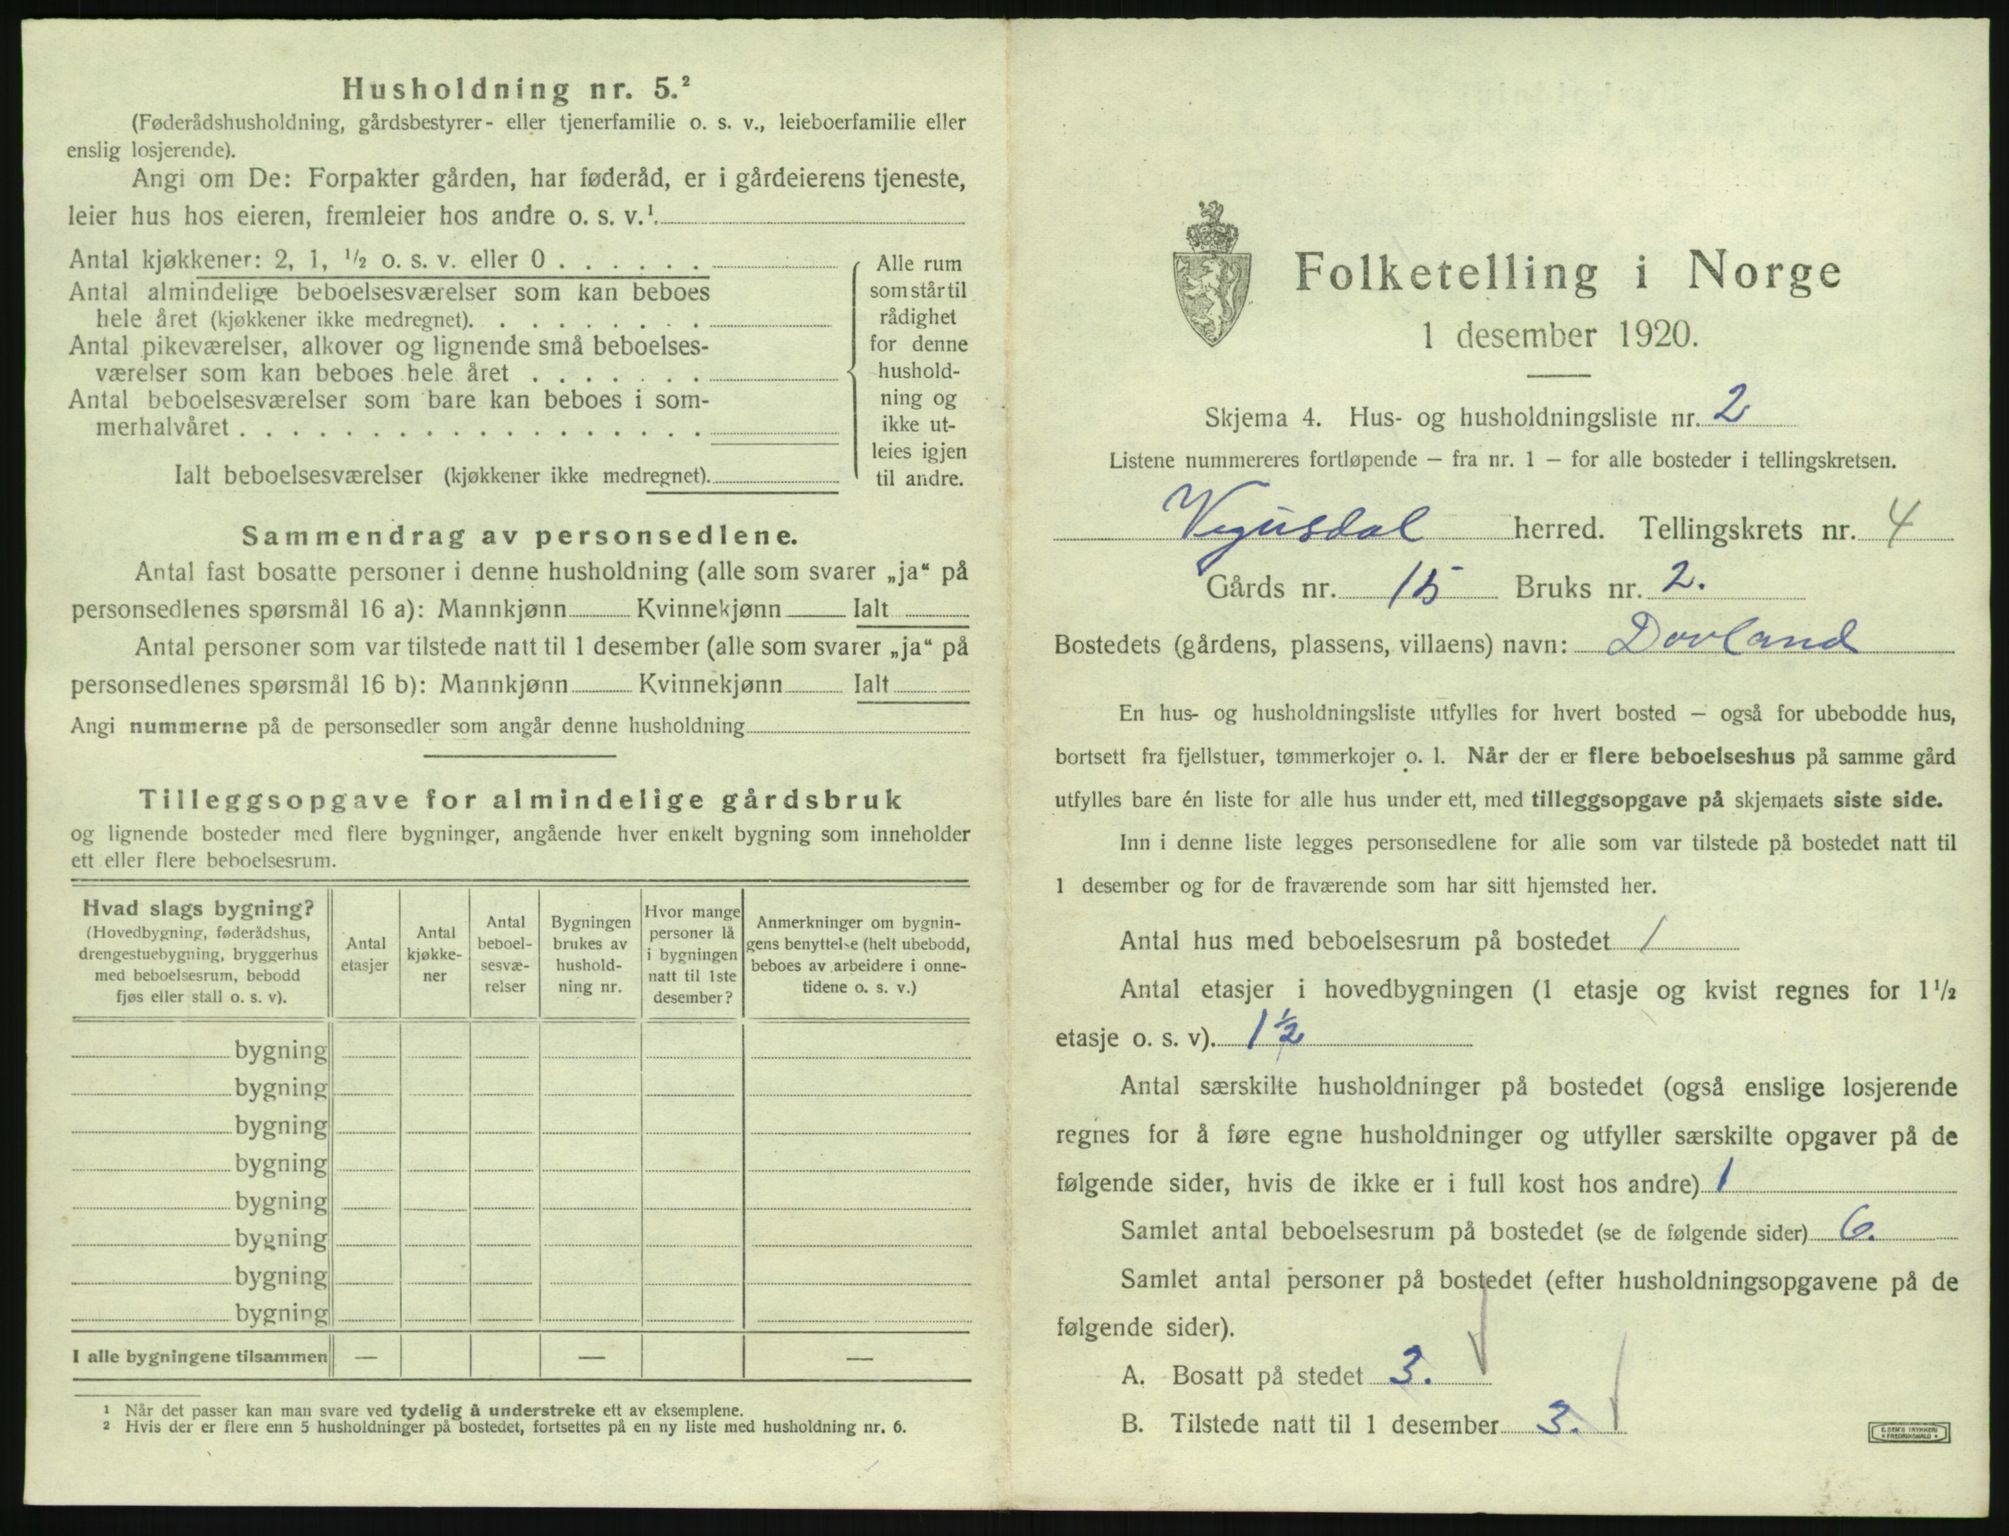 Husholdning nr. 5.²
(Føderådshusholdning, gårdsbestyrer- eller tjenerfamilie o. s. v., leieboerfamilie eller
enslig losjerende).
Angi om De: Forpakter gården, har føderåd, er i gårdeierens tjeneste,
leier hus hos eieren, fremleier hos andre o. s. v.¹
Antal kjøkkener: 2, 1, ½ o. s. v. eller 0 . . . . . .
Antal almindelige beboelsesværelser som kan beboes
hele året (kjøkkener ikke medregnet). . . . . . . . .
Antal pikeværelser, alkover og lignende små beboelses-
værelser som kan beboes hele året . . . . . . .
Antal beboelsesværelser som bare kan beboes i som-
merhalvåret . . . . . . . . . . . . . . . . . .
Ialt beboelsesværelser (kjøkkener ikke medregnet).
Alle rum
som står til
rådighet
for denne
hushold-
ning og
ikke ut-
leies igjen
til andre.
Sammendrag av personsedlene.
Antal fast bosatte personer i denne husholdning (alle som svarer „ja“ på
personsedlenes spørsmål 16 a): Mannkjønn Kvinnekjønn Ialt
Antal personer som var tilstede natt til 1 desember (alle som svarer „ja“ på
personsedlenes spørsmål 16 b): Mannkjønn Kvinnekjønn Ialt
Angi nummerne på de personsedler som angår denne husholdning
Tilleggsopgave for almindelige gårdsbruk
og lignende bosteder med flere bygninger, angående hver enkelt bygning som inneholder
ett eller flere beboelsesrum.
Hvad slags bygning?
(Hovedbygning, føderådshus,
drengestuebygning, bryggerhus
med beboelsesrum, bebodd
fjøs eller stall o. s. v).
Antal
etasjer
Antal
kjøkke-
ner
Antal
beboel-
sesvæ-
relser
Bygningen
brukes av
hushold-
ning nr.
Hvor mange
personer lå
i bygningen
natt til 1ste
desember?
Anmerkninger om bygnin-
gens benyttelse (helt ubebodd,
beboes av arbeidere i onne-
tidene o. s. v.)
bygning
bygning
bygning
bygning
bygning
bygning
bygning
bygning
I alle bygningene tilsammen — — —
¹ Når det passer kan man svare ved tydelig å understreke ett av eksemplene.
² Hvis der er flere enn 5 husholdninger på bostedet, fortsettes på en ny liste med husholdning nr. 6.
Folketelling i Norge
1 desember 1920.
Skjema 4. Hus- og husholdningsliste nr. 2
Listene nummereres fortløpende – fra nr. 1 – for alle bosteder i tellingskretsen.
Vegusdal herred. Tellingskrets nr. 4
Gårds nr. 15 Bruks nr. 2.
Bostedets (gårdens, plassens, villaens) navn: Dovland
En hus- og husholdningsliste utfylles for hvert bosted – også for ubebodde hus,
bortsett fra fjellstuer, tømmerkojer o. l. Når der er flere beboelseshus på samme gård
utfylles bare én liste for alle hus under ett, med tilleggsopgave på skjemaets siste side.
Inn i denne liste legges personsedlene for alle som var tilstede på bostedet natt til
1 desember og for de fraværende som har sitt hjemsted her.
Antal hus med beboelsesrum på bostedet 1
Antal etasjer i hovedbygningen (1 etasje og kvist regnes for 1½
etasje o. s. v). 1½
Antal særskilte husholdninger på bostedet (også enslige losjerende
regnes for å føre egne husholdninger og utfyller særskilte opgaver på de
følgende sider, hvis de ikke er i full kost hos andre) 1
Samlet antal beboelsesrum på bostedet (se de følgende sider) 6.
Samlet antal personer på bostedet (efter husholdningsopgavene på de
følgende sider).
A. Bosatt på stedet 3.
B. Tilstede natt til 1 desember 3.